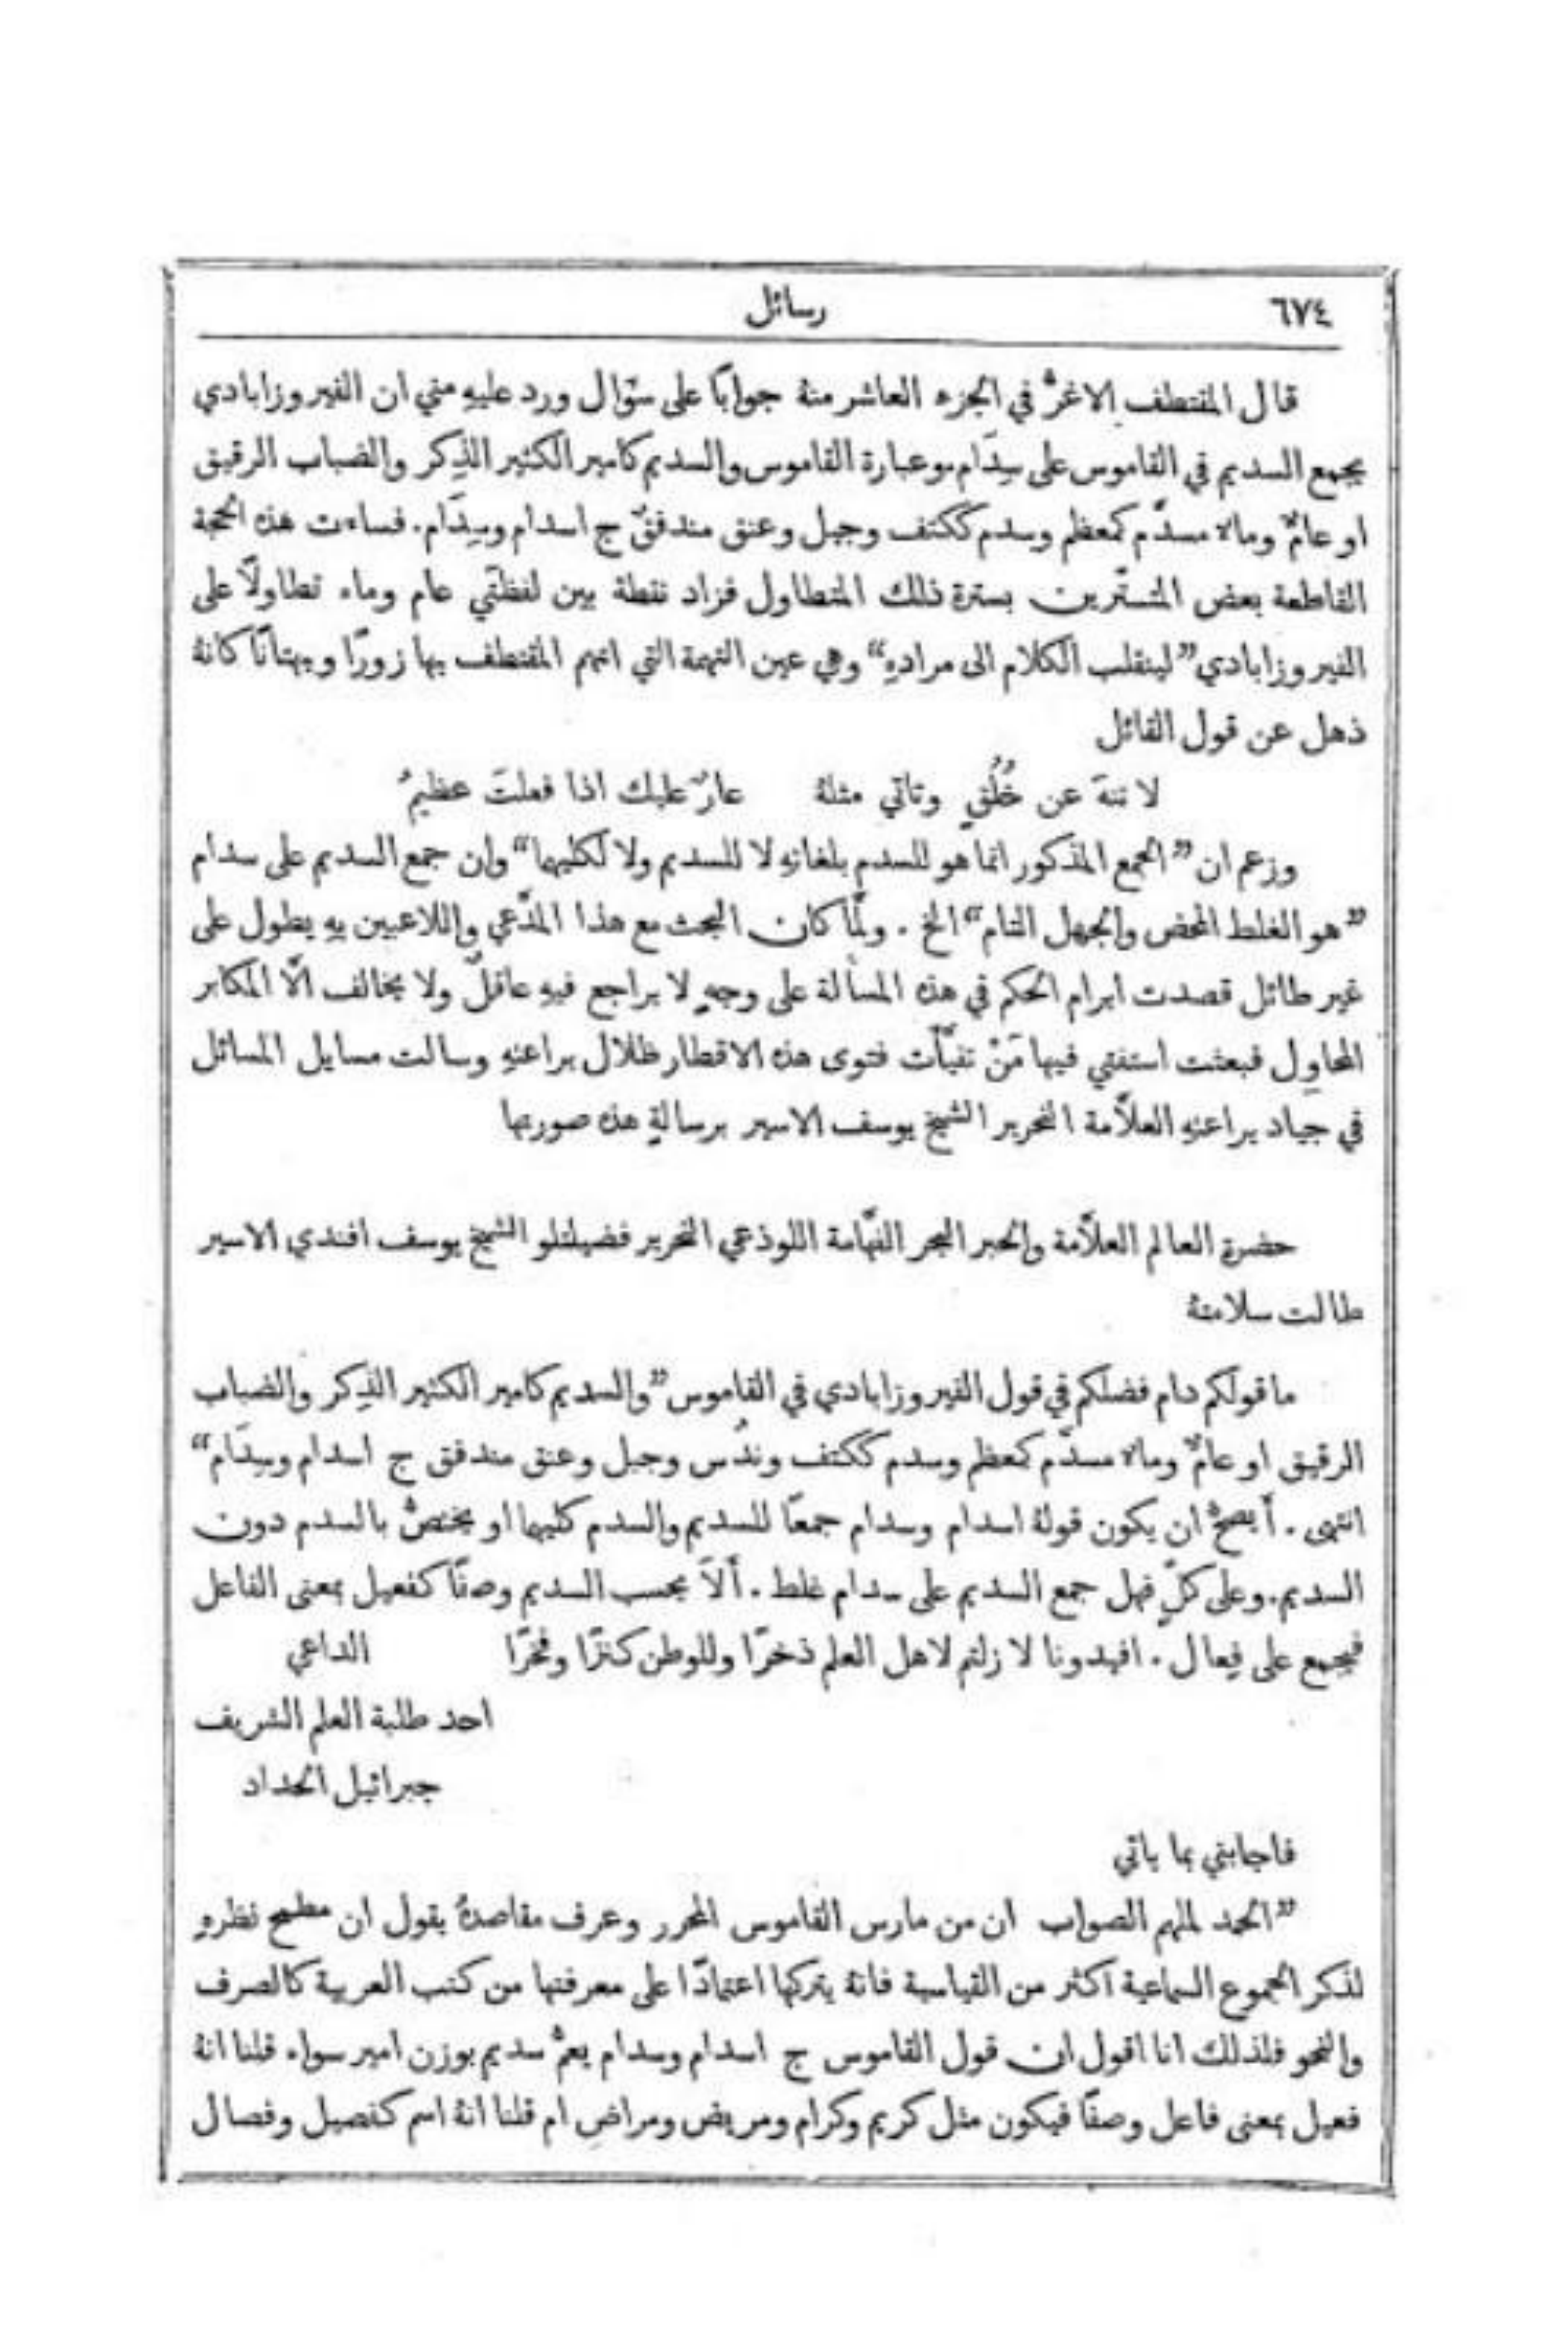 ٦٧٤
رسائل
قال المقتطف الاغرُّ في الجزء العاشر منهُ جوابًا على سؤال ورد عليهِ مني ان الفيروزابادي
يجمع السديم في القاموس على سِدَام وعبارة القاموس والسديم كامير الكثير الذِكر والضباب الرقيق
او عامٌّ وماءٌ مسدَّم كمعظم وسدم ككتف وجبل وعنق مندفقٌ ج اسدام وسِدَام. فساءت هذه الحجة
القاطعة بعض المتستّرين بسترة ذلك المتطاول فزاد نقطة بين لفظتَي عام وماء تطاولًا على
الفيروزابادي ”لينقلب الكلام الى مرادهِ“ وهي عين التهمة التي اتهم المقتطف بها زورًا وبهتانًا كانهُ
ذهل عن قول القائل
لا تنهَ عن خُلُقٍ وتاتي مثلهُ عارٌ عليك اذا فعلتَ عظيمُ
وزعم ان ”الجمع المذكور انما هو للسدم بلغاتهِ لا للسديم ولا لكليهما“ وان جمع السديم على سدام
”هو الغلط المحض والجهل التام“ الخ . ولمَّا كان البحث مع هذا المدَّعي واللاعبين بهِ يطول على
غير طائل قصدت ابرام الحكم في هذه المسألة على وجهٍ لا يراجع فيهِ عاقلٌ ولا يخالف الَّا المكابر
المحاوِل فبعثت استفتي فيها مَنْ تفيَّأَت فتوى هذه الاقطار ظلال براعتهِ وسالت مسايل المسائل
في جياد يراعتهِ العلَّامة النحرير الشيخ يوسف الاسير برسالةٍ هذه صورتها
حضرة العالم العلَّامة والحبر البحر الفهَّامة اللوذعي النحرير فضيلتلو الشيخ يوسف افندي الاسير
طالت سلامتهُ
ما قولكم دام فضلكم في قول الفيروزابادي في القاموس ”والسديم كامير الكثير الذِكر والضباب
الرقيق او عامٌّ وماءٌ مسدَّم كمعظم وسدم ككتف وندُس وجبل وعنق مندفق ج اسدام وسِدَام“
انتهى . أَيصحُّ ان يكون قولهُ اسدام وسدام جمعًا للسديم والسدم كليهما او يختصُّ بالسدم دون
السديم. وعلى كلٍّ فهل جمع السديم على سدام غلط . أَلَا يحسب السديم وصفًا كفعيل بمعنى الفاعل
فيجمع على فِعال . افيدونا لا زلتم لاهل العلم ذخرًا وللوطن كنزًا وفخرًا الداعي
احد طلبة العلم الشريف
جبرائيل الحداد
فاجابني بما ياتي
”الحمد لملهم الصواب ان من مارس القاموس المحرر وعرف مقاصدهُ يقول ان مطمح نظرهِ
لذكر الجموع السماعية اكثر من القياسية فانهُ يتركها اعتمادًا على معرفتها من كتب العربية كالصرف
والنحو فلذلك انا اقول ان قول القاموس ج اسدام وسدام يعمُّ سديم بوزن امير سواء قلنا انهُ
فعيل بمعنى فاعل وصفًا فيكون مثل كريم وكرام ومريض ومراضٍ ام قلنا انهُ اسم كفصيل وفصال